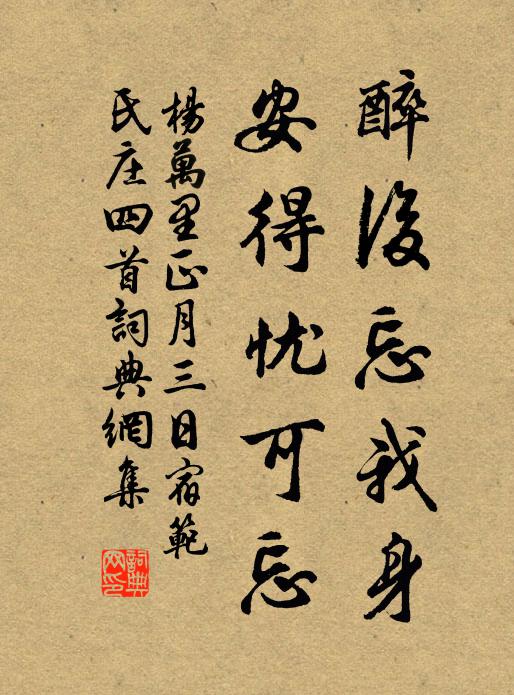 醉後忘我身
安得忧可忘
楊萬里正月三日宿範
氏庄四首詞典網集
詞典網印